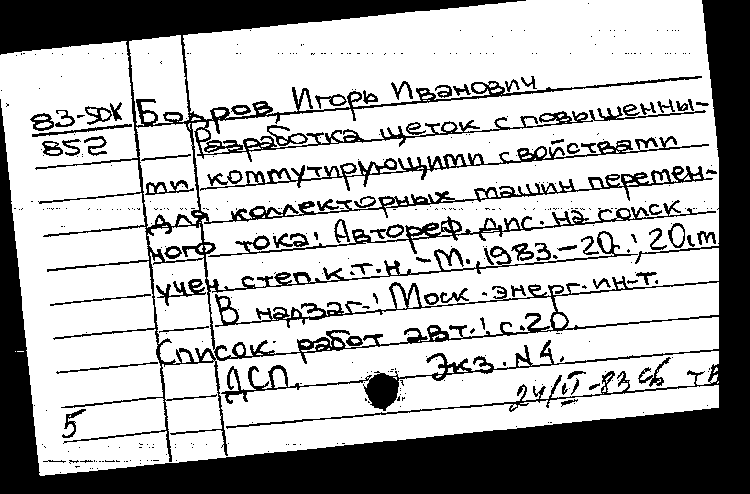 83-5ДК Бодров, Игорь Иванович.
852 Разработка щеток с повышенны-
ми коммутирующими свойствами
для коллекторных машин перемен-
ного тока: Автореф. дис. на соиск.
учен. степ. к.т.н. - М., 1983. - 20с.; 20см
В надзаг.: Моск. энерг. ин-т.
Список работ авт.: с.20.
ДСП. Экз. N4.
5 24/II-83